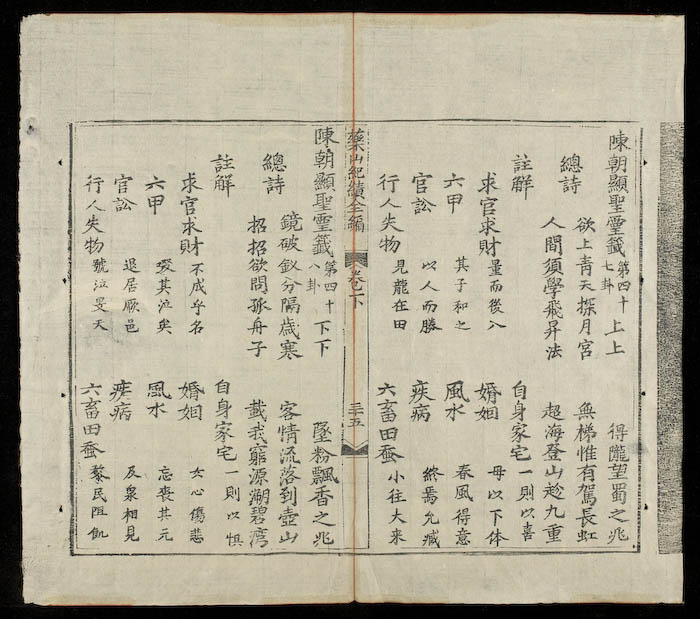 陳朝顯聖靈籤 第四十七卦 上上 得隴望蜀之兆
總詩 欲上青天探月宮 無梯惟有駕長虹
人間須學飛昇法 超海登山趁九重
註解 自身家宅 一則以喜
求官求財 量而後入 婚姻 毋以下体
六甲 其子和之 風水 春風得意
官訟 以人而勝 疾病 終焉允臧
行人失物 見龍在田 六畜田蚕 小往大来
藥山紀績全編 卷一下 三十五
陳朝顯聖靈籤 第四十八卦 下下 墜粉飄香之兆
總詩 鏡破釵分隔歲寒 客情流落到壺山
招招欲問孤舟子 載我窮源溯碧灣
註解 自身家宅 一則以惧
求官求財 不成乎名 婚姻 女心傷悲
六甲 啜其泣矣 風水 忘喪其元
官訟 退居厥邑 疾病 及泉相見
行人失物 號泣旻天 六畜田蚕 黎民阻飢